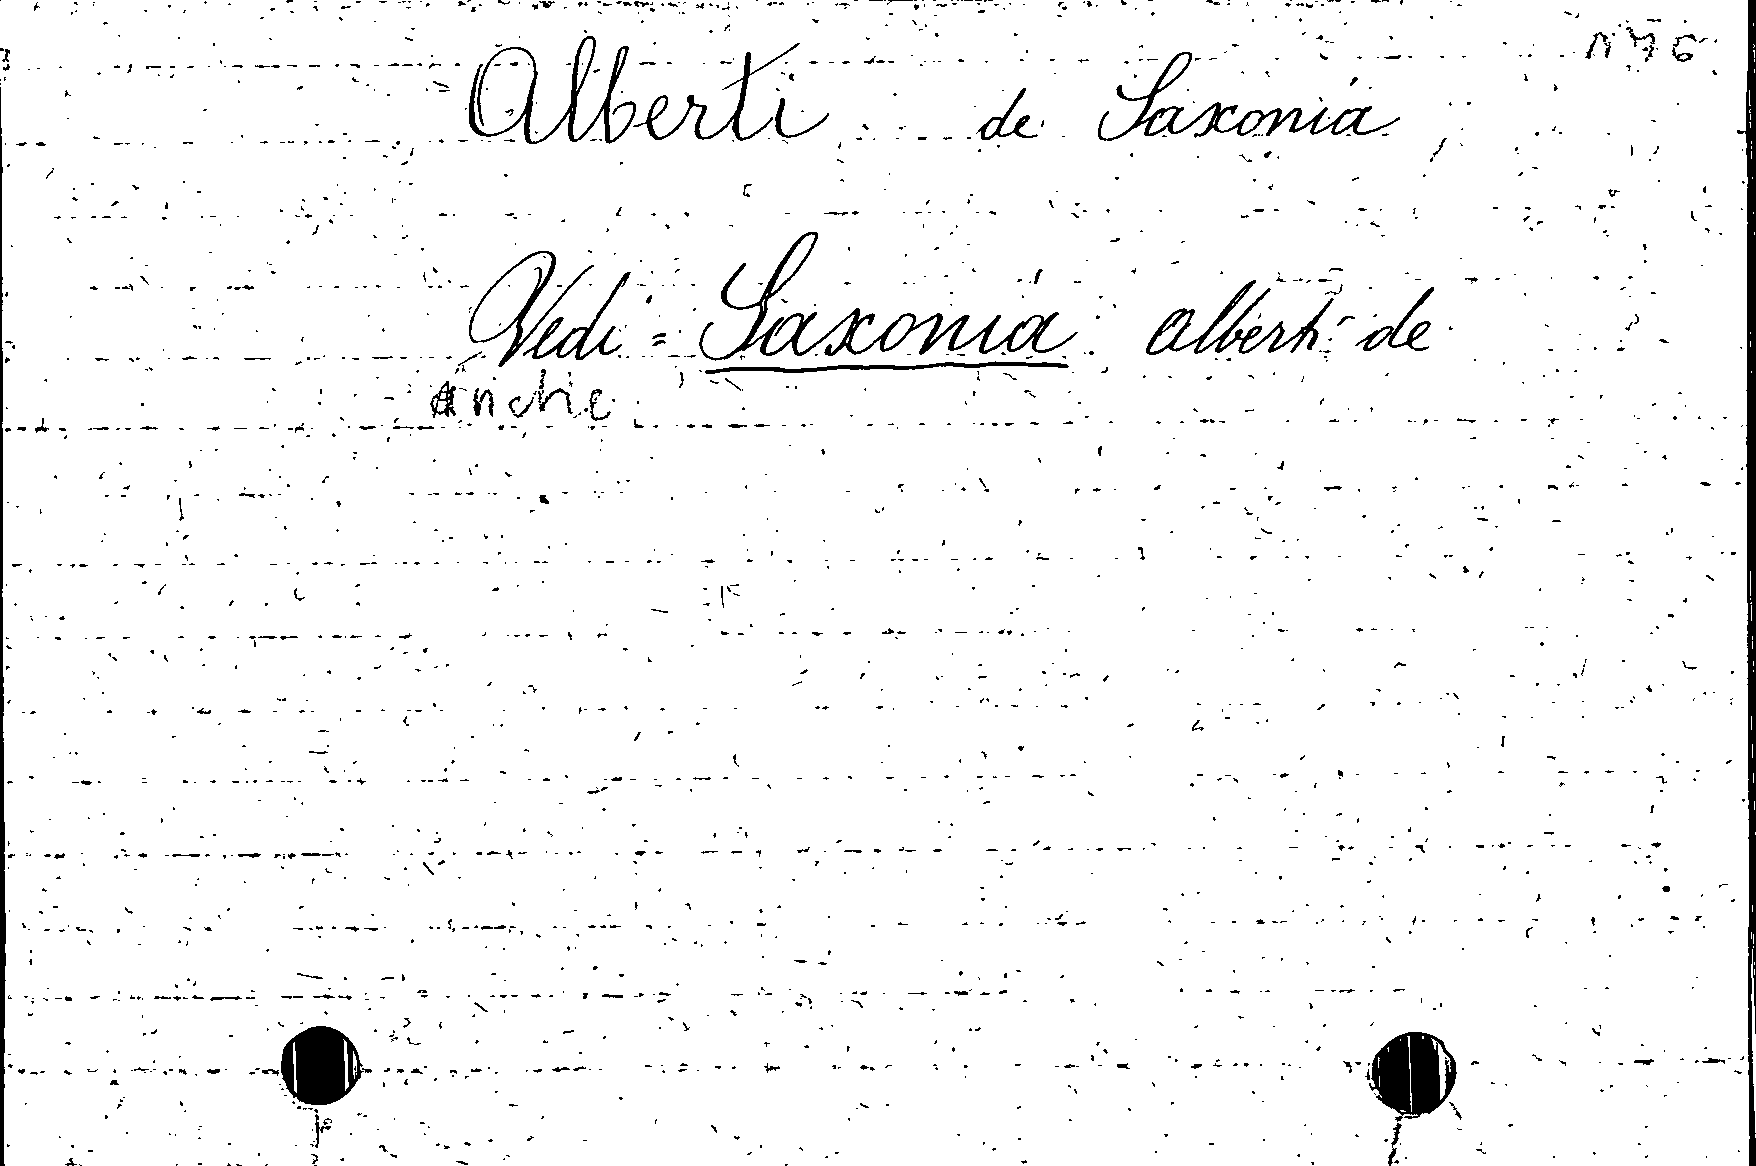 Alberti de Saxonia
Vedi = Saxonia alberti de
anche